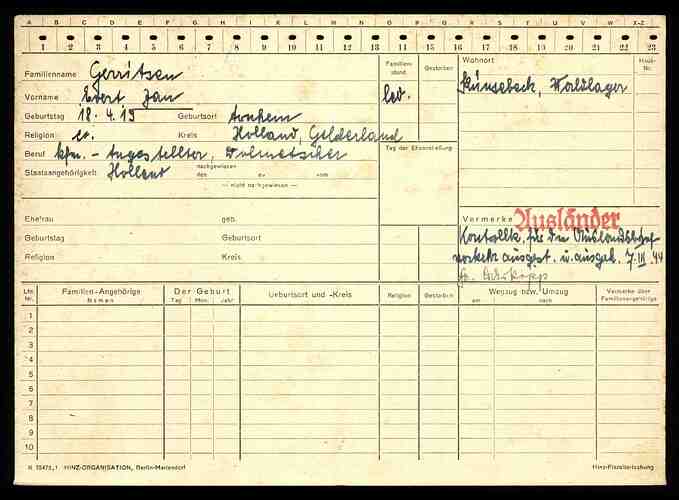 A B C D E F G H I K L M N O P Q R S T U V W X-Z
1 2 3 4 5 6 7 8 9 10 11 12 13 14 15 16 17 18 19 20 21 22 23
Familienname Gerritsen
Familienstand
led.
Gestorben
Wohnort
Künsebeck, Waldlager
Haus-Nr.
Vorname Evert Jan
Geburtstag 18. 4. 19 Geburtsort Arnheim
Religion ev. Kreis Holland, Gelderland
Beruf kfm. - Angestellter, Dolmetscher
Tag der Eheschließung
Staatsangehörigkeit Holland
nachgewiesen
den av vom
— nicht nachgewiesen —
Vermerke Ausländer
Kontrollk. für den Auslandsbrief
verkehr ausgest. u. ausgeh. 7. III. 44
Ehefrau geb.
Geburtstag Geburtsort
Religion Kreis
Lfd. Nr. Familien-Angehörige Namen Der Geburt Tag Mon. Jahr Geburtsort und -Kreis Religion Gestorben Wegzug bzw. Umzug am nach Vermerke über Familienangehörige
1
2
3
4
5
6
7
8
9
10
HINZ-ORGANISATION, Berlin-Mariendorf